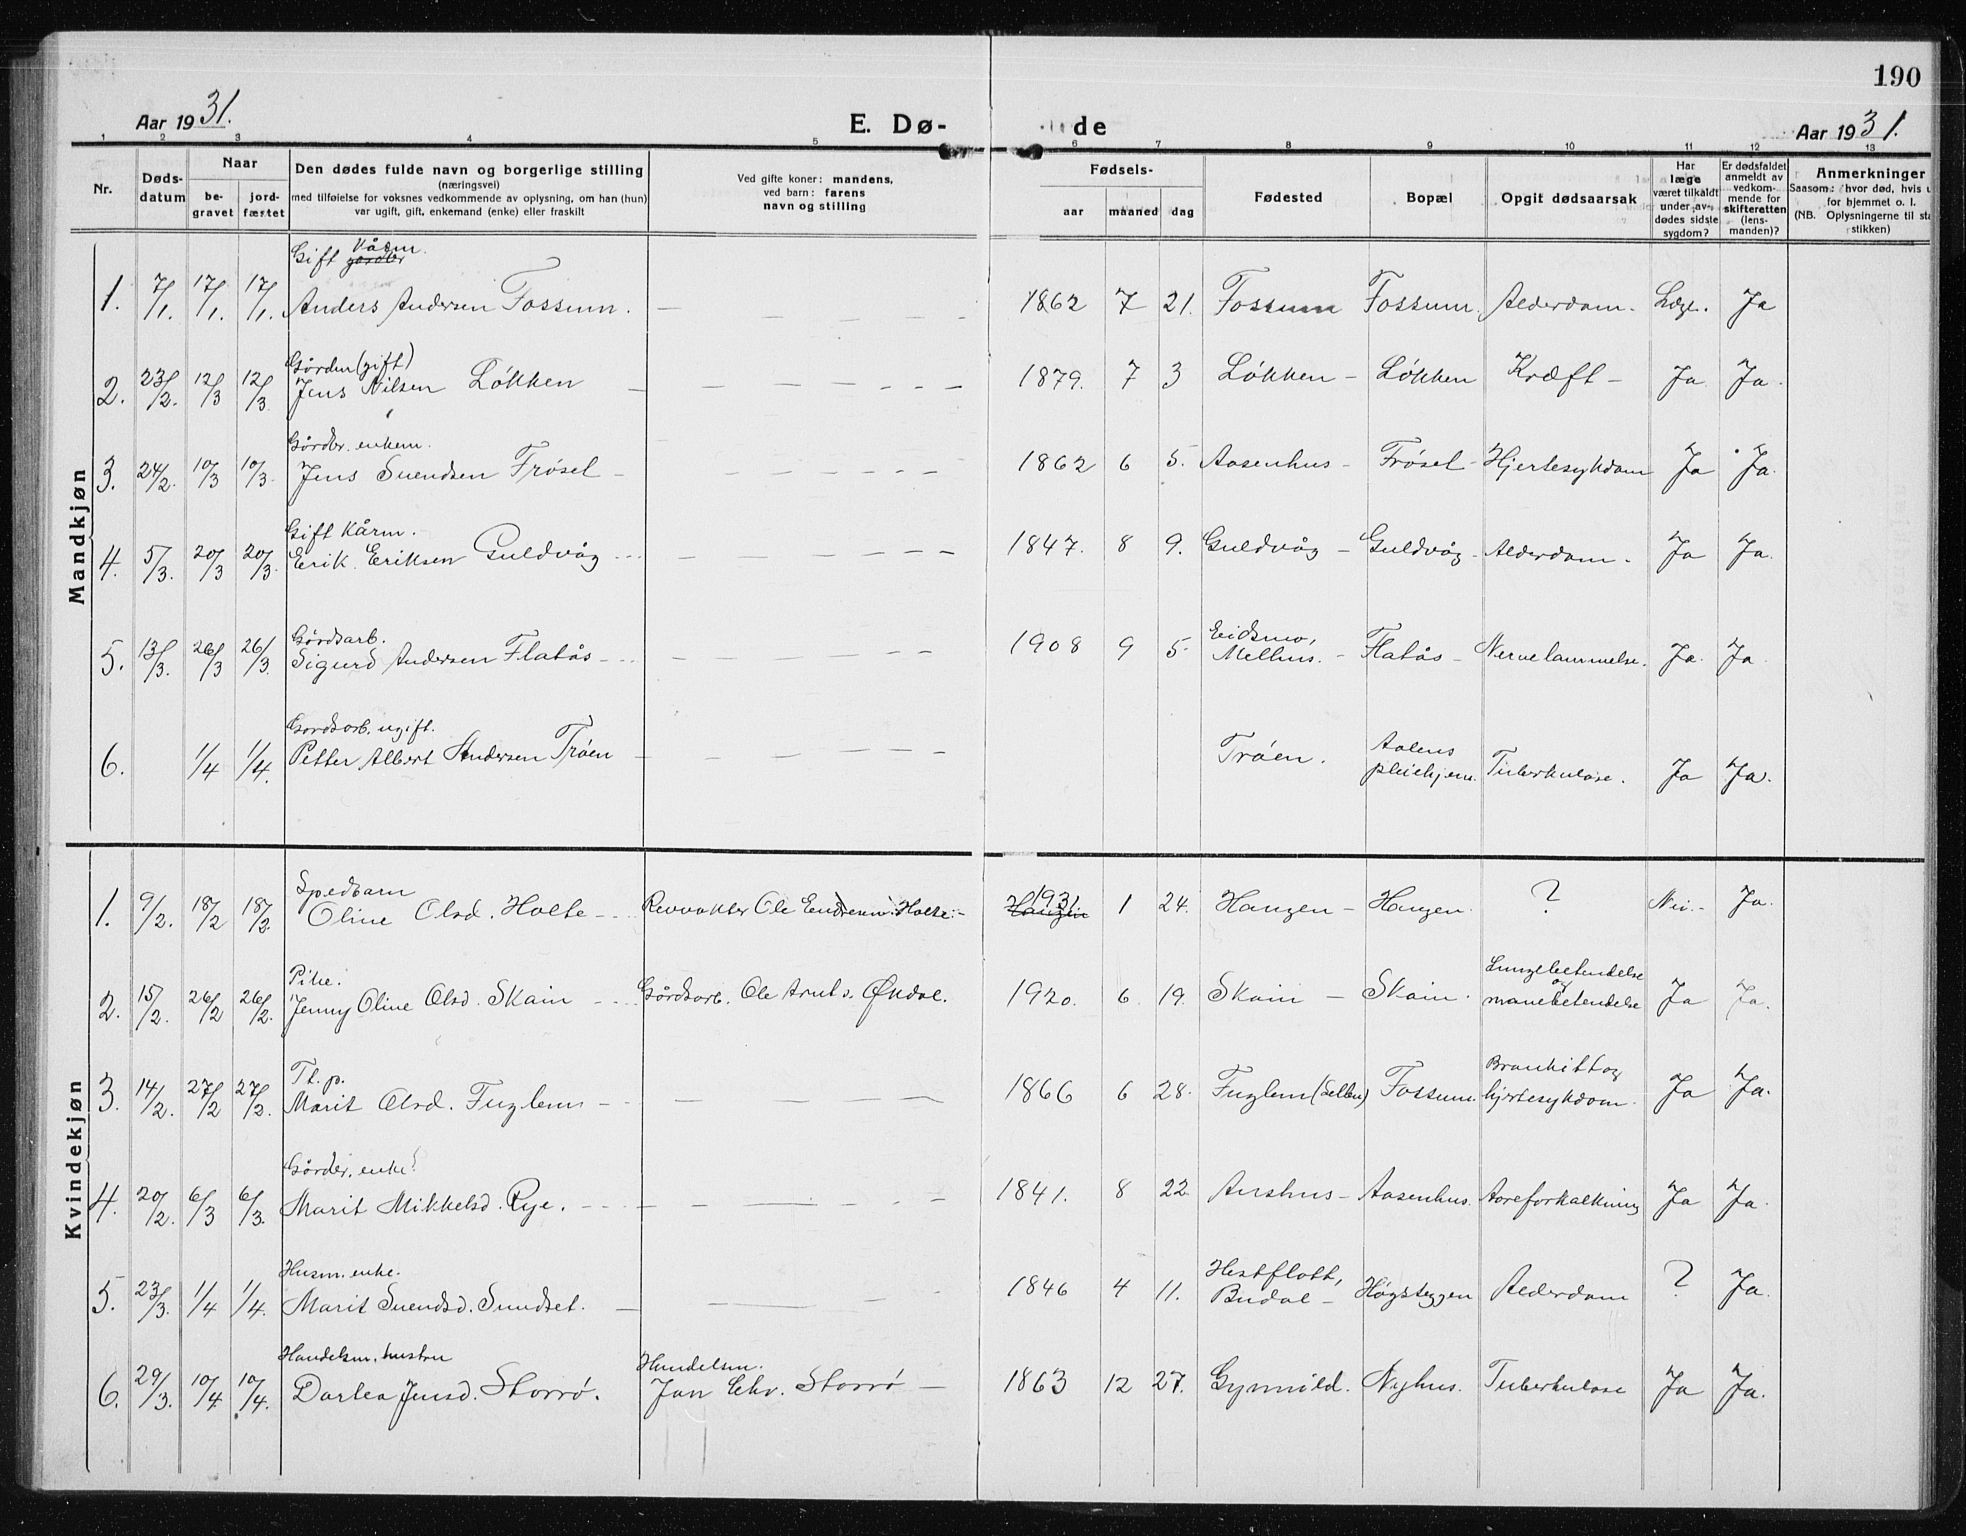 190
Aar 1931.
E. Dø-
de
Aar 1931.
1 2 3 4 5 6 7 8 9 10 11 12 13
Nr.
Døds-
datum
Naar
be-
gravet
jord-
fæstet
Den dødes fulde navn og borgerlige stilling
(næringsvei)
med tilføielse for voksnes vedkommende av oplysning, om han (hun)
var ugift, gift, enkemand (enke) eller fraskilt
Ved gifte koner: mandens,
ved barn: farens
navn og stilling
Fødsels-
aar
maaned
dag
Fødested
Bopæl
Opgit dødsaarsak
Har
læge
været tilkaldt
under av-
dødes sidste
sygdom?
Er dødsfaldet
anmeldt av
vedkom-
mende for
skifteretten
(lens-
manden)?
Anmerkninger
Saasom: hvor død, hvis u
for hjemmet o. l.
(NB. Oplysningerne til sta
stikken)
Mandkjøn
Gift gårdbr Kårm.
1. 7/1. 17/1. 17/1. Anders Andersen Fossum. — 1862 7 21. Fossum Fossum. Alderdom. Læge. Ja
Gårdm (gift)
2. 23/2. 12/3 12/3 Jens Nilsen Løkken — 1879. 7 3 Løkken – Løkken Kræft – Ja Ja.
Gårdbr. enkem.
3. 24/2. 10/3 10/3. Jens Svendsen Frøset – 1862 6 5. Aasenhus – Frøset – Hjertesykdom Ja Ja.
Gift Kårm.
4. 5/3. 20/3 20/3. Erik Eriksen Guldvåg — 1847. 8 9. Guldvåg – Guldvåg – Alderdom. Ja Ja.
Gårdsarb.
5. 13/3. 26/3 26/3 Sigurd Andersen Flatås – 1908 9 5 Eidsmo,
Melhus. – Flatås – Nervelammelse. Ja. Ja.
Gardsarb. ugift.
6. 1/4 1/4. Petter Albert Andersen Trøen – Trøen. Aalens
pleiehjem. Tuberkulose. Ja Ja.
Kvindekjøn
Spedbarn
1. 9/2. 18/2 18/2. Oline Olsd. Holte – Ole Endresen Holte – Haugen 1931. 1 24. Haugen – Haugen. ? Nei. – Ja.
Pike.
2. 15/2. 26/2 26/2. Jenny Oline Olsd. Skain – Gårdsarb. Ole Arnt s. Økdal. 1920. 6 19. Skain – Skain. Lungebetendelse
og
mavebetendelse Ja Ja.
Th. p.
3. 14/2. 27/2 27/2. Marit Olsd. Fuglem – 1866 6 28. Fuglem Fossum. Bronkitt og
hjertesykdom. Ja Ja.
Gårdbr. enke.
4. 20/2. 6/3 6/3. Marit Mikkelsd. Rye. – 1841. 8 22 Aushus – Aasenhus. Aareforkalkning Ja Ja.
Husm. enke.
5. 23/3. 1/4 1/4. Marit Svendsd. Sundset. – 1846 4 11. Hestflott,
Budal – Høgsteggen Alderdom ? Ja.
Handelsm. hustru
6. 29/3. 10/4 10/4. Dortea Jensd. Storrø. Handelsm.
Jan Chr. Storrø – 1863 12 27. Gynnild. Nyhus. Tuberkulose Ja Ja.